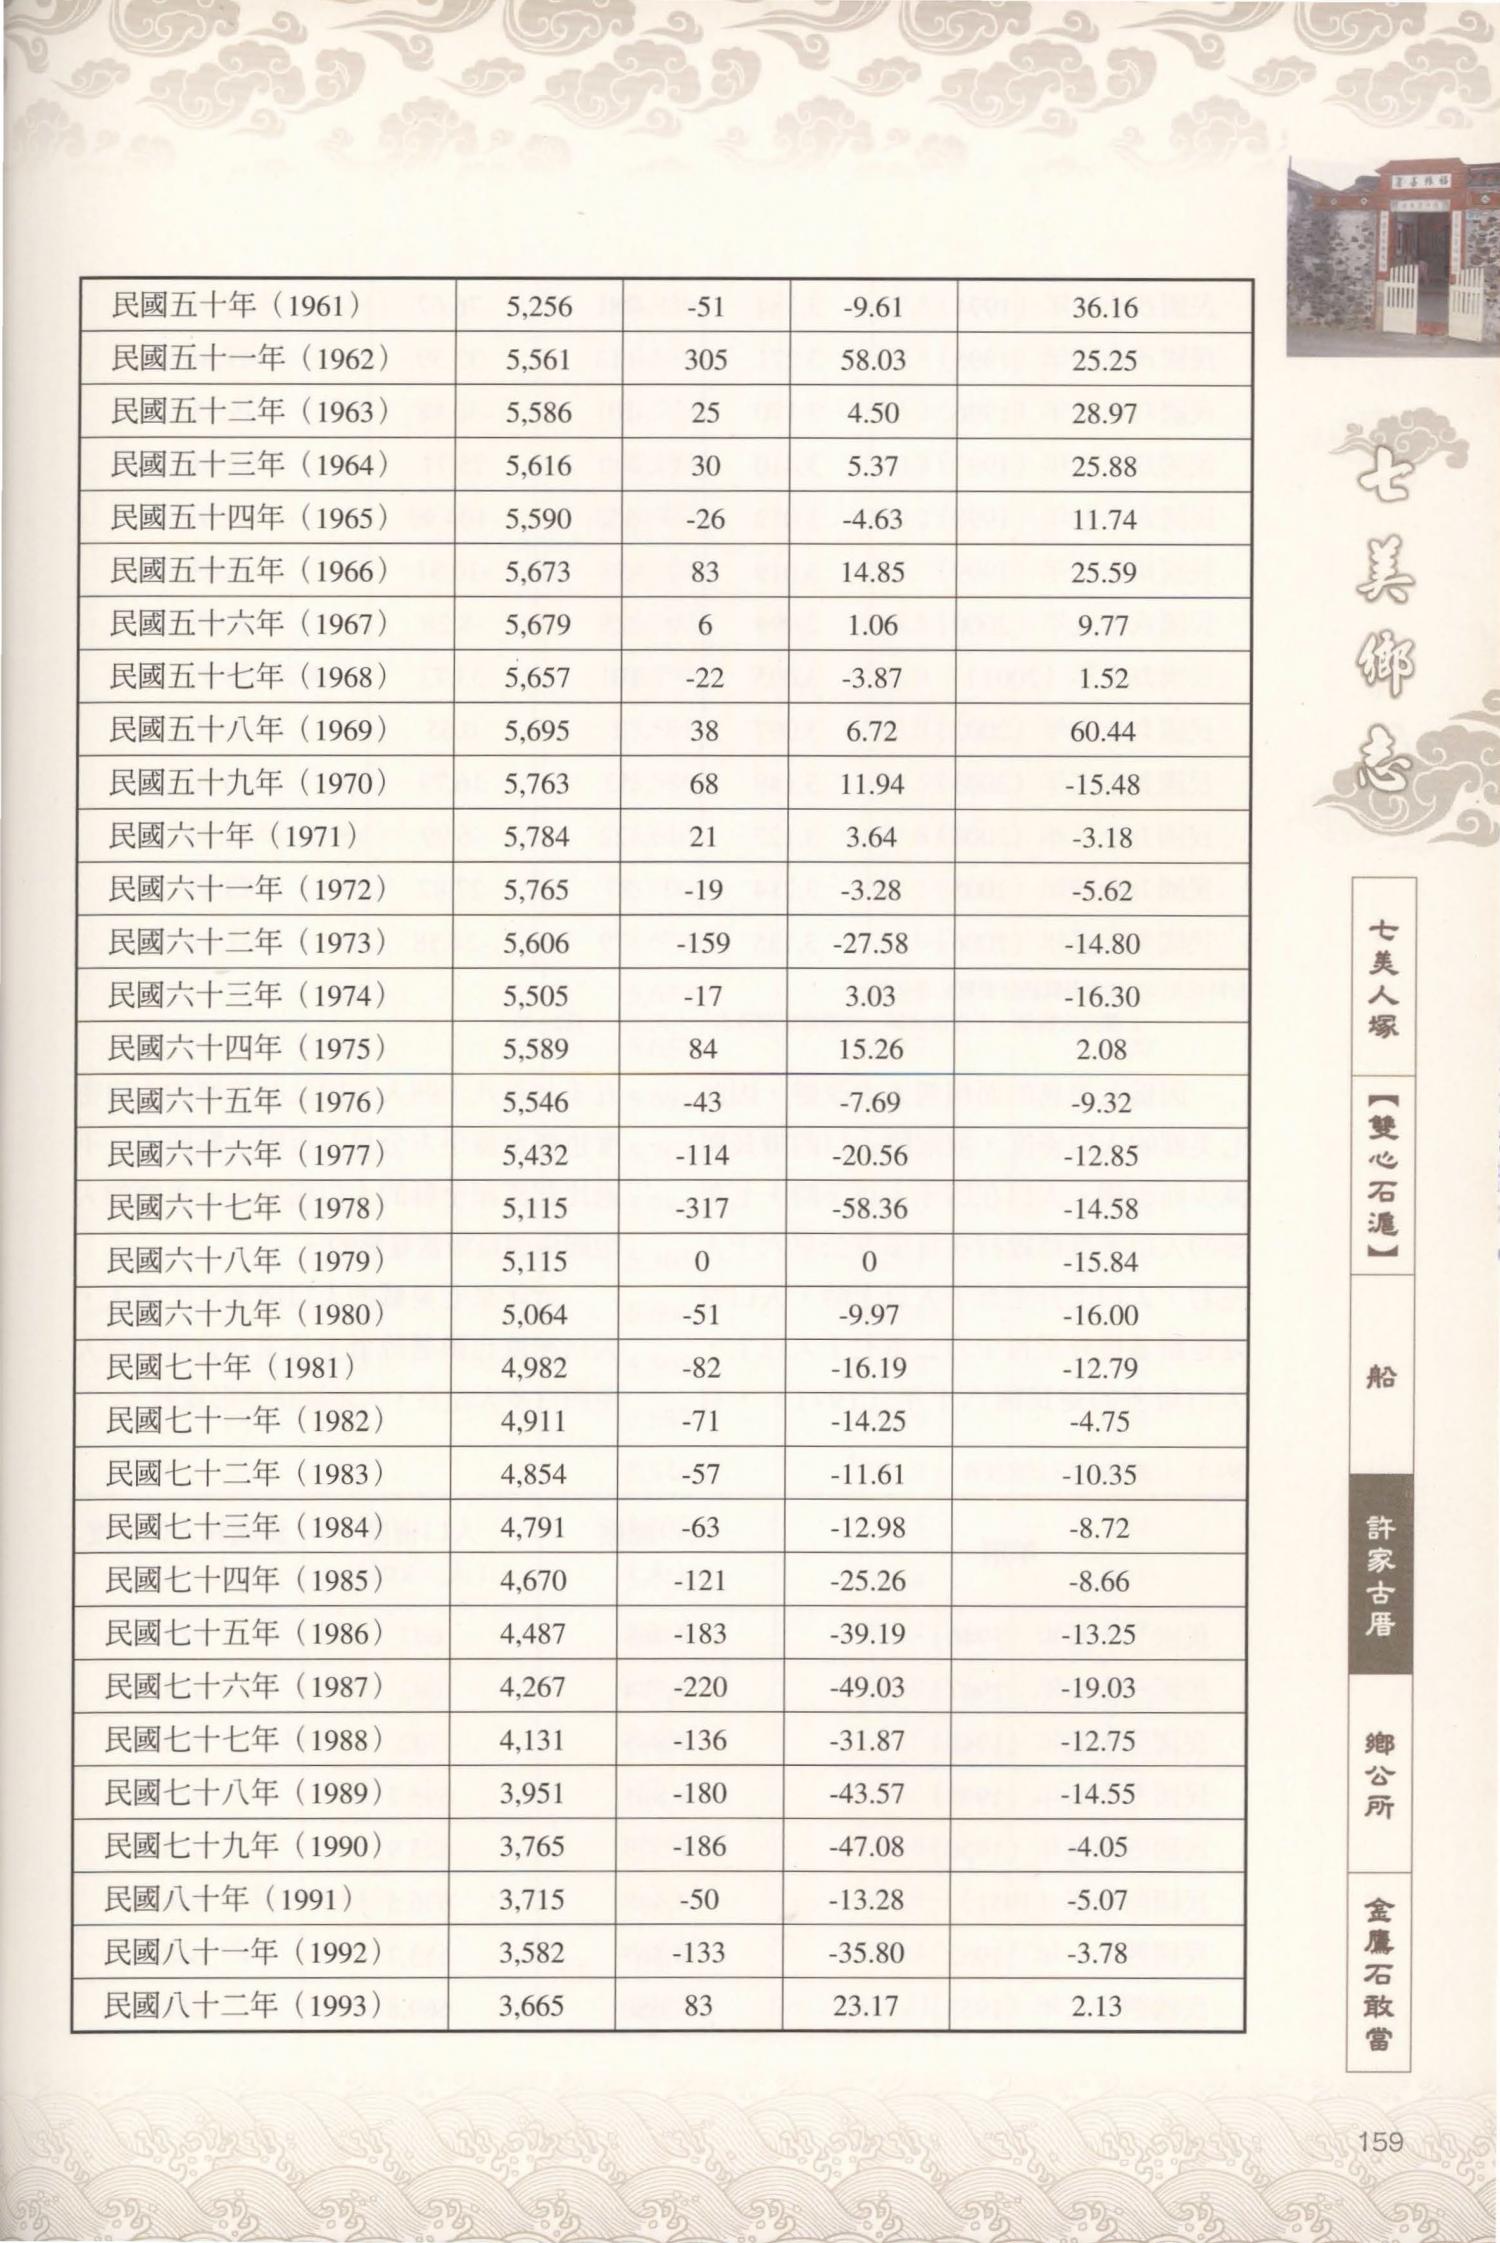 民國五十年（1961） 5,256 -51 -9.61 36.16
民國五十一年（1962） 5,561 305 58.03 25.25
民國五十二年（1963） 5,586 25 4.50 28.97
民國五十三年（1964） 5,616 30 5.37 25.88
民國五十四年（1965） 5,590 -26 -4.63 11.74
民國五十五年（1966） 5,673 83 14.85 25.59
民國五十六年（1967） 5,679 6 1.06 9.77
民國五十七年（1968） 5,657 -22 -3.87 1.52
民國五十八年（1969） 5,695 38 6.72 60.44
民國五十九年（1970） 5,763 68 11.94 -15.48
民國六十年（1971） 5,784 21 3.64 -3.18
民國六十一年（1972） 5,765 -19 -3.28 -5.62
民國六十二年（1973） 5,606 -159 -27.58 -14.80
民國六十三年（1974） 5,505 -17 3.03 -16.30
民國六十四年（1975） 5,589 84 15.26 2.08
民國六十五年（1976） 5,546 -43 -7.69 -9.32
民國六十六年（1977） 5,432 -114 -20.56 -12.85
民國六十七年（1978） 5,115 -317 -58.36 -14.58
民國六十八年（1979） 5,115 0 0 -15.84
民國六十九年（1980） 5,064 -51 -9.97 -16.00
民國七十年（1981） 4,982 -82 -16.19 -12.79
民國七十一年（1982） 4,911 -71 -14.25 -4.75
民國七十二年（1983） 4,854 -57 -11.61 -10.35
民國七十三年（1984） 4,791 -63 -12.98 -8.72
民國七十四年（1985） 4,670 -121 -25.26 -8.66
民國七十五年（1986） 4,487 -183 -39.19 -13.25
民國七十六年（1987） 4,267 -220 -49.03 -19.03
民國七十七年（1988） 4,131 -136 -31.87 -12.75
民國七十八年（1989） 3,951 -180 -43.57 -14.55
民國七十九年（1990） 3,765 -186 -47.08 -4.05
民國八十年（1991） 3,715 -50 -13.28 -5.07
民國八十一年（1992） 3,582 -133 -35.80 -3.78
民國八十二年（1993） 3,665 83 23.17 2.13
七美鄉志
七美人塚
【雙心石滬】
船
許家古厝
鄉公所
金鷹石敢當
159